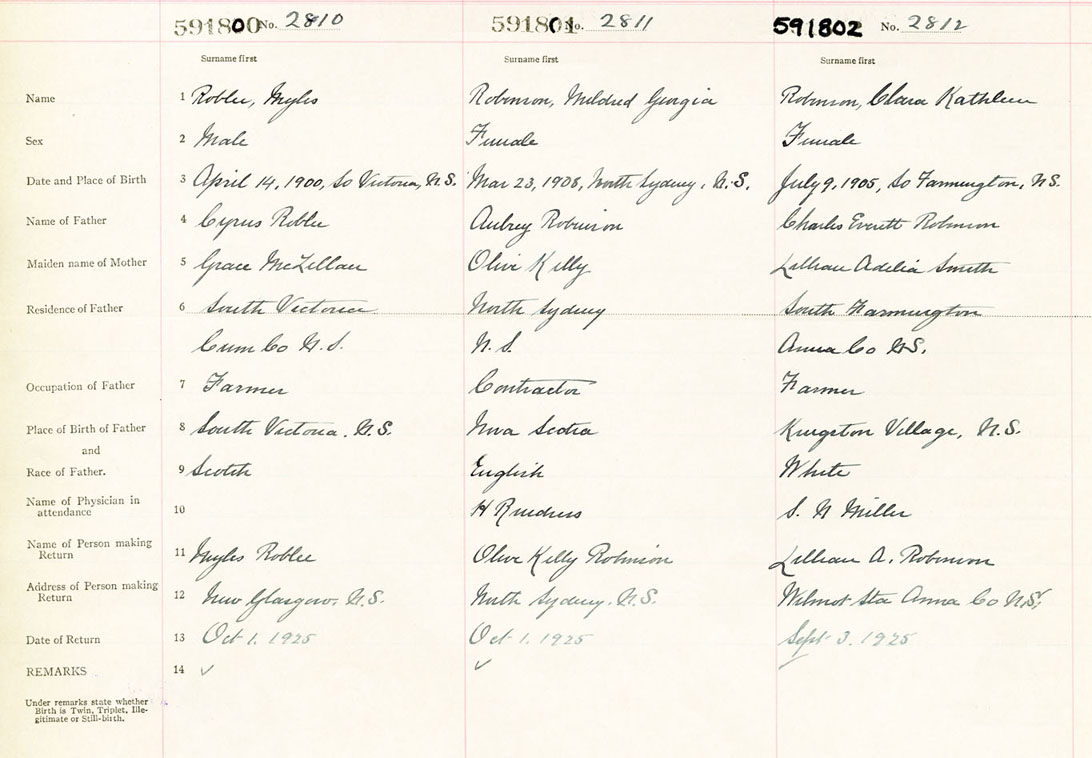 591800 No. 2810 591801 No. 2811 591802 No. 2812
Surname first Surname first Surname first
Name 1 Roblee, Myles Robinson, Mildred Georgia Robinson, Clara Kathleen
Sex 2 Male Female Female
Date and Place of Birth 3 April 14, 1900, So Victoria, N.S. Mar 23, 1908, North Sydney, N.S. July 9, 1905, So Farmington, N.S.
Name of Father 4 Cyrus Roblee Aubrey Robinson Charles Everett Robinson
Maiden name of Mother 5 Grace McLellan Olive Kelly Lillian Adelia Smith
Residence of Father 6 South Victoria North Sydney South Farmington
Cum Co N.S. N.S. Anna Co N.S.
Occupation of Father 7 Farmer Contractor Farmer
Place of Birth of Father 8 South Victoria, N.S. Nova Scotia Kingston Village, N.S.
and
Race of Father. 9 Scotch English White
Name of Physician in
attendance 10 H S. N Miller
Name of Person making
Return 11 Myles Roblee Olive Kelly Robinson Lillian A. Robinson
Address of Person making
Return 12 New Glasgow, N.S. North Sydney, N.S. Wilmot Sta Anna Co N.S.
Date of Return 13 Oct 1. 1925 Oct 1. 1925 Sept 3. 1925
REMARKS 14 ✓ ✓ ✓
Under remarks state whether
Birth is Twin, Triplet, Ille-
gitimate or Still-birth.